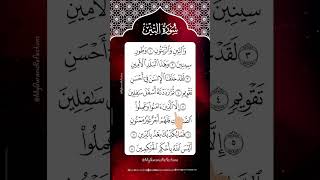 سُورَةُ التِّينِ
وَالتِّينِ وَالزَّيْتُونِ ۝١ وَطُورِ
سِينِينَ ۝٢ وَهَٰذَا الْبَلَدِ الْأَمِينِ
۝٣ لَقَدْ خَلَقْنَا الْإِنسَٰنَ فِي أَحْسَنِ
تَقْوِيمٍ ۝٤ ثُمَّ رَدَدْنَٰهُ أَسْفَلَ سَٰفِلِينَ
۝٥ إِلَّا الَّذِينَ ءَامَنُوا وَعَمِلُوا
الصَّٰلِحَٰتِ فَلَهُمْ أَجْرٌ غَيْرُ مَمْنُونٍ
۝٦ فَمَا يُكَذِّبُكَ بَعْدُ بِالدِّينِ ۝٧
أَلَيْسَ اللَّهُ بِأَحْكَمِ الْحَٰكِمِينَ ۝٨
@MyQuranReflections